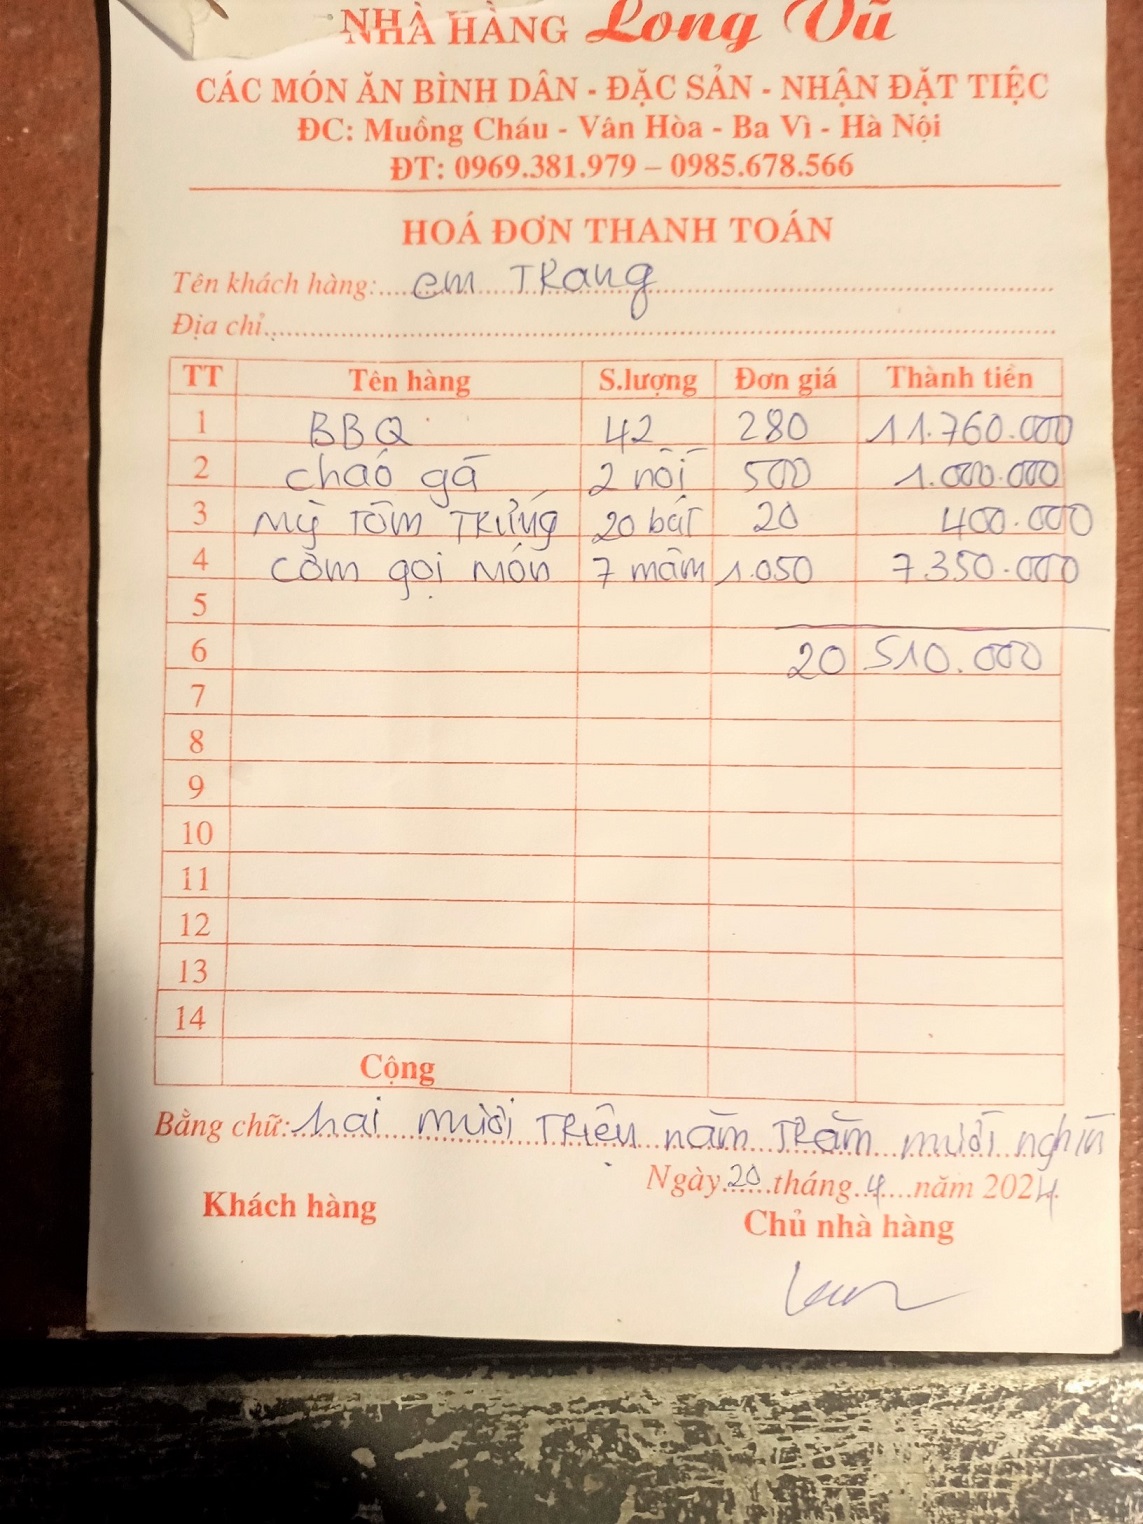 NHÀ HÀNG Long Vũ
CÁC MÓN ĂN BÌNH DÂN - ĐẶC SẢN - NHẬN ĐẶT TIỆC
ĐC: Muồng Cháu - Vân Hòa - Ba Vì - Hà Nội
ĐT: 0969.381.979 – 0985.678.566
HOÁ ĐƠN THANH TOÁN
Tên khách hàng: em Trang
Địa chỉ
TT Tên hàng S.lượng Đơn giá Thành tiền
1 BBQ 42 280 11.760.000
2 cháo gà 2 nồi 500 1.000.000
3 Mỳ Tôm Trứng 20 bát 20 400.000
4 Cơm gọi món 7 mâm 1.050 7.350.000
5
6 20 510.000
7
8
9
10
11
12
13
14
Cộng
Bằng chữ: hai mươi Triệu năm Trăm mười nghìn
Ngày 20 tháng 4 năm 2024
Khách hàng Chủ nhà hàng